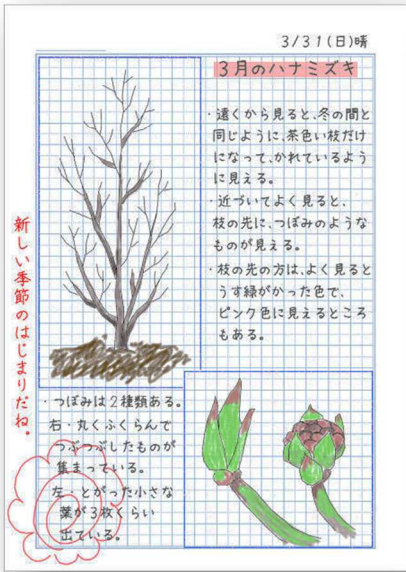 3/31(日)晴
3月のハナミズキ
・遠くから見ると、冬の間と
同じように、茶色い枝だけ
になって、かれているよう
に見える。
・近づいてよく見ると、
枝の先に、つぼみのような
ものが見える。
・枝の先の方は、よく見ると
うす緑がかった色で、
ピンク色に見えるところ
もある。
新しい季節のはじまりだね。
・つぼみは2種類ある。
右・丸くふくらんで
つぶつぶしたものが
集まっている。
左・とがった小さな
葉が3枚くらい
出ている。